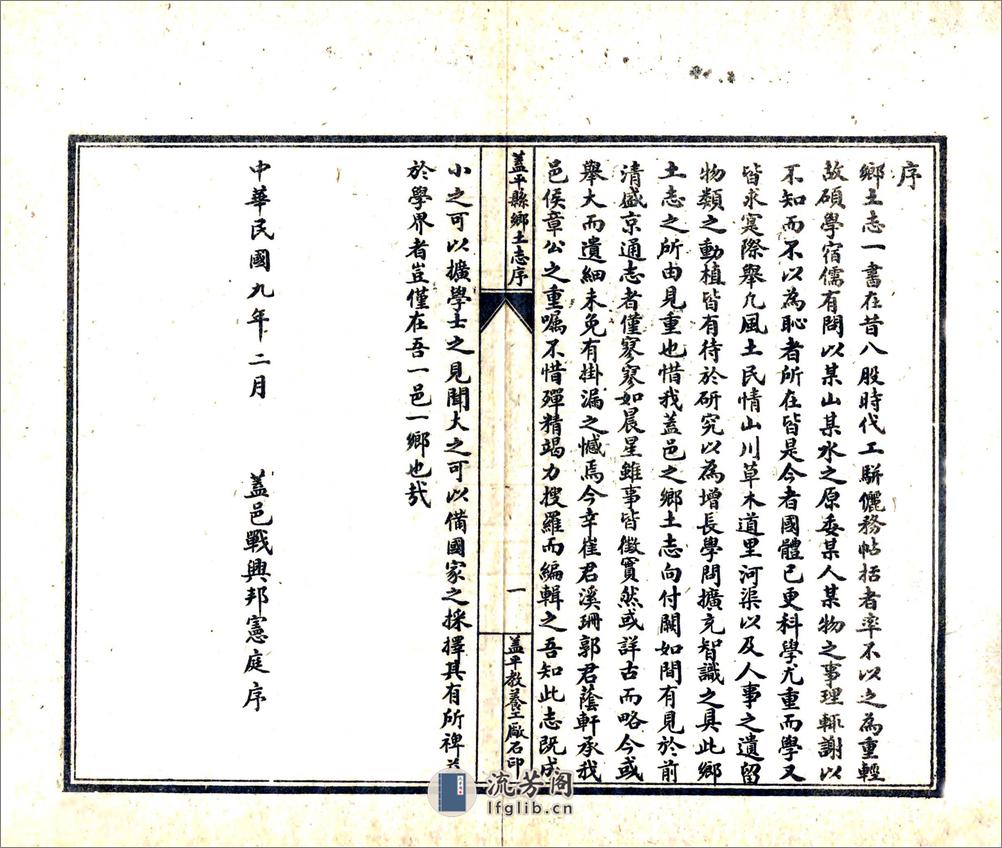 序
鄉土志一書在昔八股時代工駢儷務帖括者率不以之為重輕
故碩學宿儒有問以某山某水之原委某人某物之事理輒謝以
不知而不以為恥者所在皆是今者國體已更科學尤重而學又
皆求寔際舉凡風土民情山川草木道里河渠以及人事之遺留
物類之動植皆有待於研究以為增長學問擴充智識之具此鄉
土志之所由見重也惜我蓋邑之鄉土志向付闕如間有見於前
清盛京通志者僅寥寥如晨星雖事皆徵實然或詳古而略今或
舉大而遺細未免有掛漏之憾焉今幸崔君溪珊郭君蔭軒承我
邑侯章公之重囑不惜殫精竭力搜羅而編輯之吾知此志既成
蓋平縣鄉土志序
一
蓋平教養工廠石印
小之可以擴學士之見聞大之可以備國家之採擇其有所裨益
於學界者豈僅在吾一邑一鄉也哉
中華民國九年二月
蓋邑戰興邦憲庭序
流芳阁
lfglib.cn